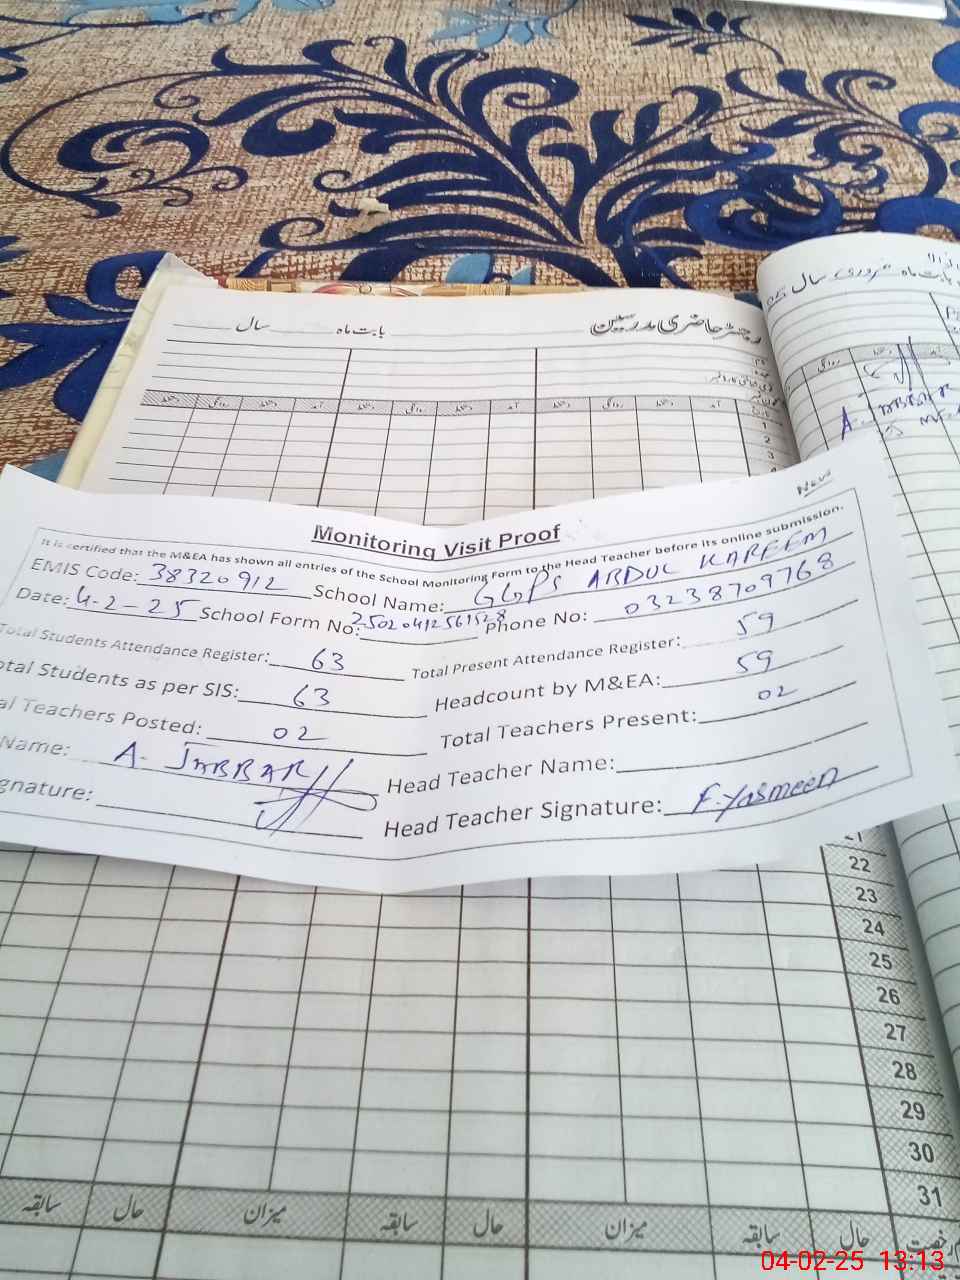 رجسٹر حاضری مدرسین بابت ماہ سال
بابت ماہ فروری سال
دستخط روانگی دستخط آمد دستخط روانگی دستخط آمد دستخط روانگی دستخط آمد
1
2
3
New
Monitoring Visit Proof
It is certified that the M&EA has shown all entries of the School Monitoring Form to the Head Teacher before its online submission.
EMIS Code: 38320912 School Name: GGPS ABDUL KAREEM
Date: 4-2-25 School Form No: 25020412561528 Phone No: 03238709768
Total Students Attendance Register: 63 Total Present Attendance Register: 59
otal Students as per SIS: 63 Headcount by M&EA: 59
al Teachers Posted: 02 Total Teachers Present: 02
Name: A. JABBAR Head Teacher Name:
gnature: Head Teacher Signature: F. Yasmeen
21
22
23
24
25
26
27
28
29
30
31
سابقہ حال میزان سابقہ حال میزان سابقہ حال رخصت
04-02-25 13:13